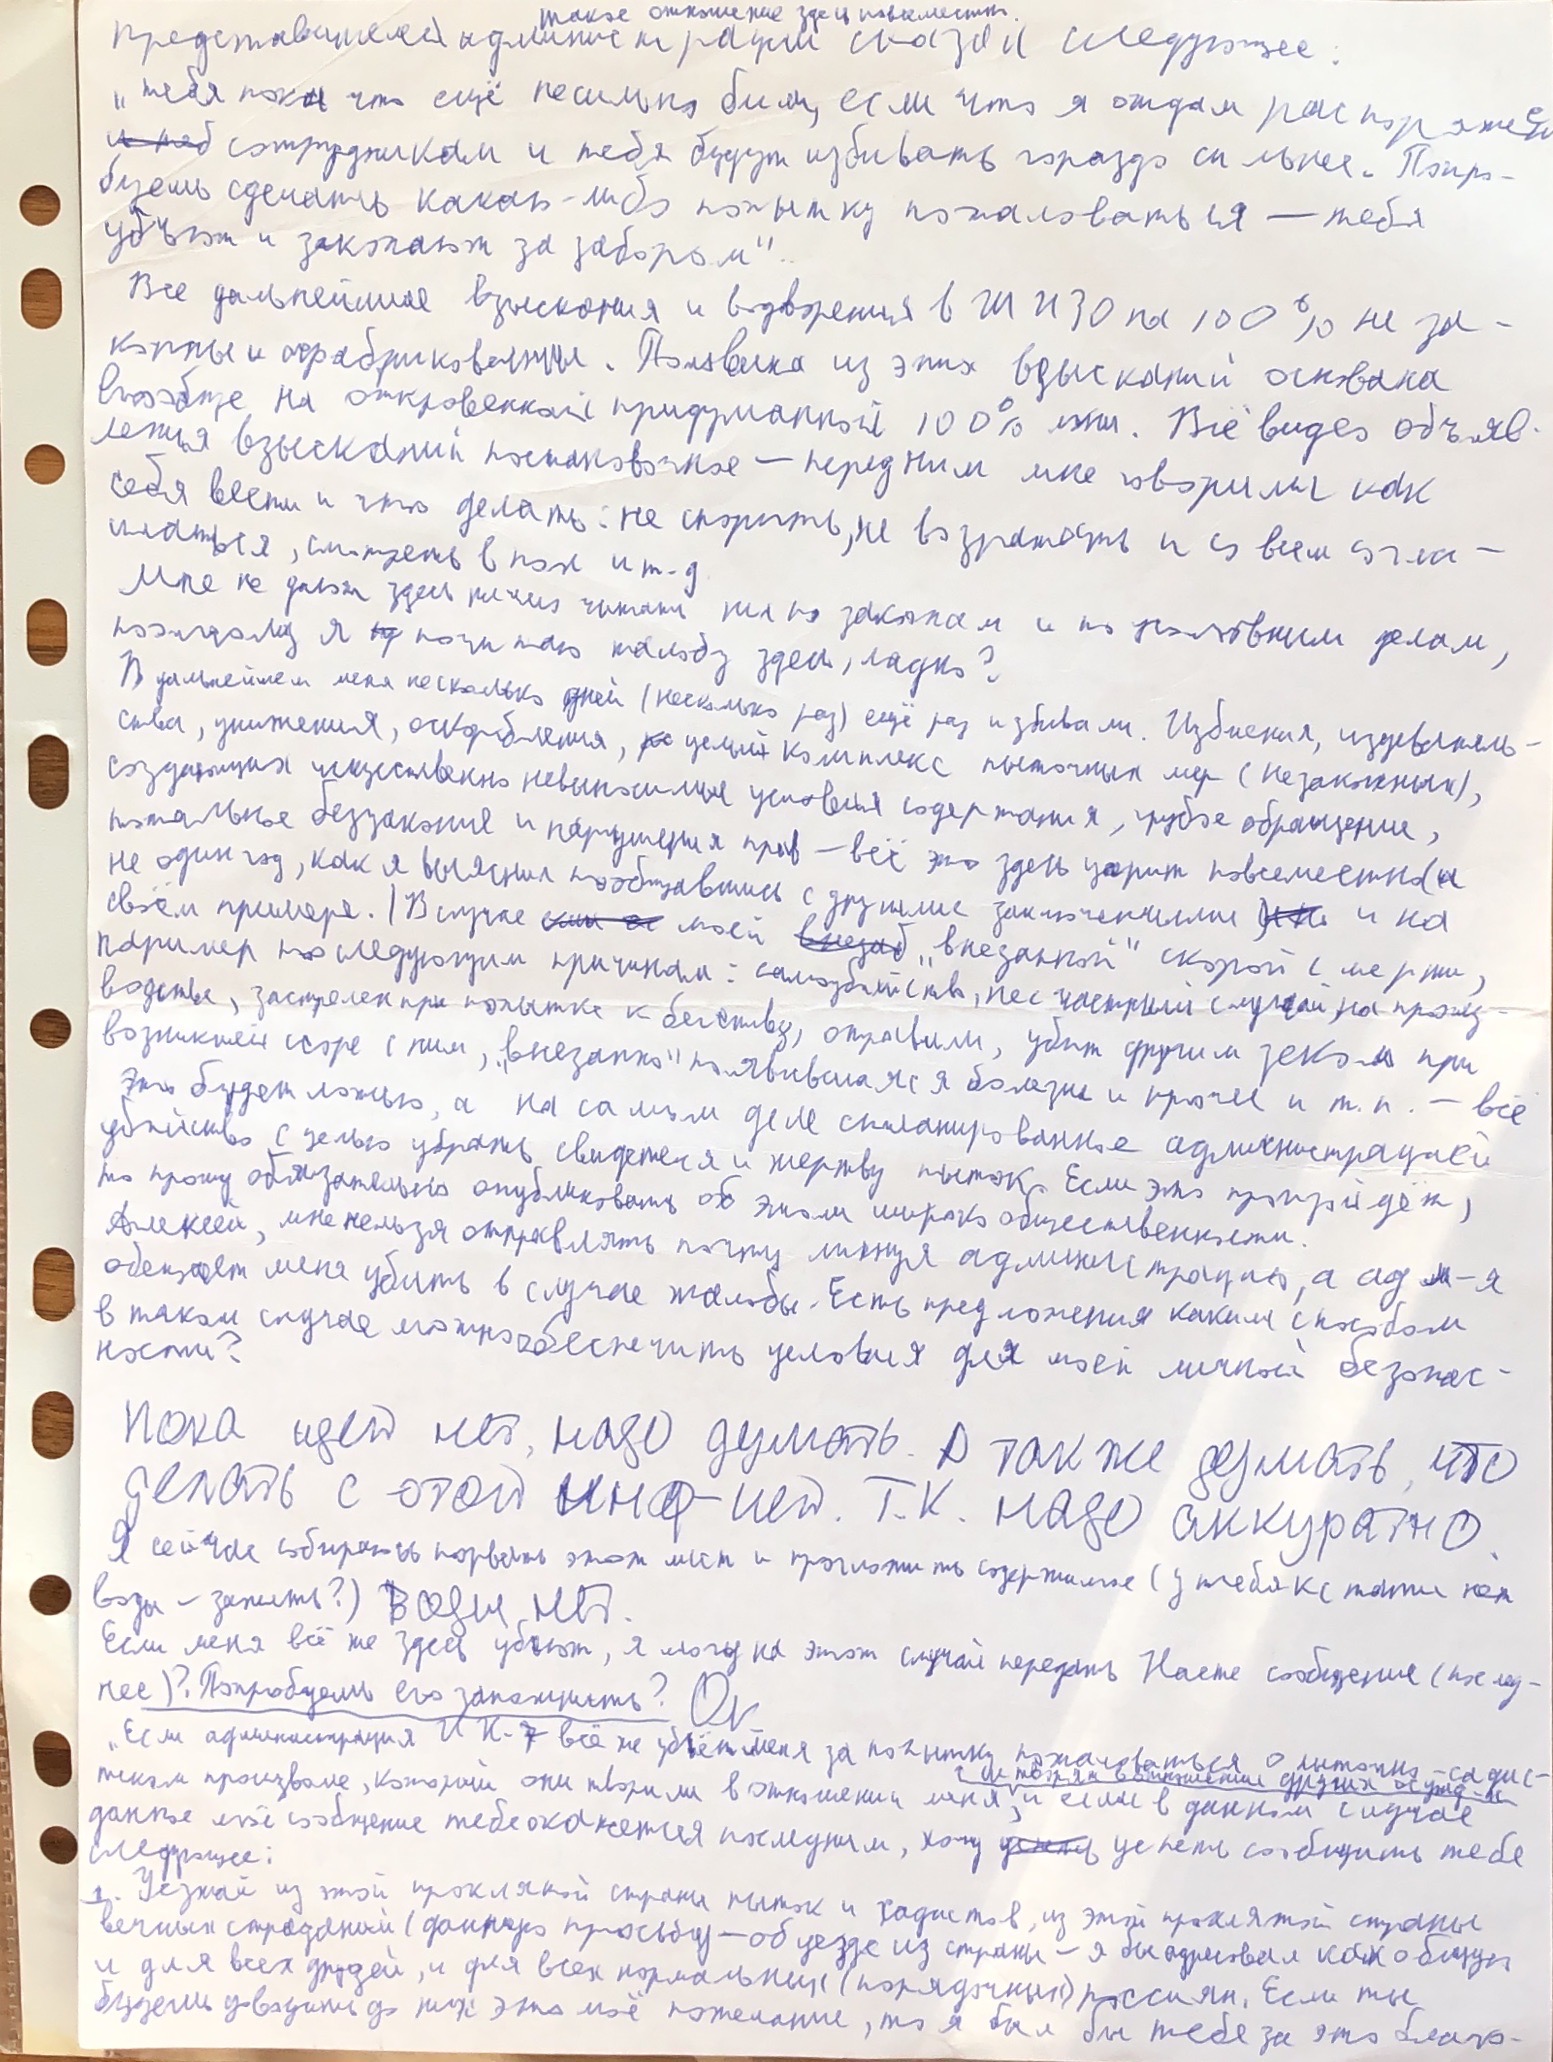 такое отношение здесь повсеместно.
представителей администрации сказал следующее:
„тебя пока что ещё несильно били, если что я отдам распоряжение
сотрудникам и тебя будут избивать гораздо сильнее. Попро-
буешь сделать какаю-либо попытку пожаловаться — тебя
убьют и закопают за забором".
Все дальнейшие взыскания и водворения в ШИЗО на 100% не за-
конны и сфабрикованны. Половина из этих взысканий основана
вообще на откровенной придуманной 100% лжи. Всё видео объяв-
ления взысканий постановочное — перед ним мне говорили как
себя вести и что делать: не спорить, не возражать и со всем согла-
шаться, смотреть в пол и т.д
Мне не дают здесь ничего читать ни по законам и по уголовным делам,
поэтому я почитаю жалобу здесь, ладно?
В дальнейшем меня несколько дней (несколько раз) ещё раз избивали. Избиения, издеватель-
ства, унижения, оскорбления, целый комплекс пыточных мер (незаконных),
создающих искусственно невыносимые условия содержания, грубое обращение,
тотальное беззаконие и нарушения прав — всё это здесь царит повсеместно (и
не один год, как я выяснил пообщавшись с другими заключенными и на
своём примере. | В случае моей „внезапной" скорой смерти,
например по следующим причинам: самоубийство, несчастный случай на произ-
водстве, застрелен при попытке к бегству, отравили, убит другим зеком при
возникшей ссоре с ним, „внезапно" появившаяся болезнь и прочее и т.п. — всё
это будет ложью, а на самом деле спланированное администрацией
убийство с целью убрать свидетеля и жертву пыток. Если это произойдёт,
то прошу обязательно опубликовать об этом широко общественности.
Алексей, мне нельзя отправлять почту минуя администрацию, а адм-я
обещает меня убить в случае жалобы. Есть предложения каким способом
в таком случае можно обеспечить условия для моей личной безопас-
ности?
Пока идей нет, надо думать. А также думать, что
делать с этой инф-ией. Т.К. надо аккуратно.
Я сейчас собираюсь порвать этот лист и проглотить содержимое (у тебя кстати нет
воды – запить?) Воды нет.
Если меня всё же здесь убьют, я могу на этот случай передать Насте сообщение (послед-
нее)?. Попробуешь его запомнить? Ок
„Если администрация ИК-7 всё же убьёт меня за попытку пожаловаться о пыточно-садис-
тском произволе, который они творили в отношении меня, и если в данном случае
и творят в отношении других осужд-х
данное моё сообщение тебе окажется последним, хочу успеть сообщить тебе
следующее:
1. Уезжай из этой проклятой страны пыток и садистов, из этой проклятой страны
вечных страданий (данную просьбу — об уезде из страны – я бы адресовал как общую
и для всех друзей, и для всех нормальных (порядочных) россиян. Если ты
будешь доводить до них это моё пожелание, то я был бы тебе за это благо-